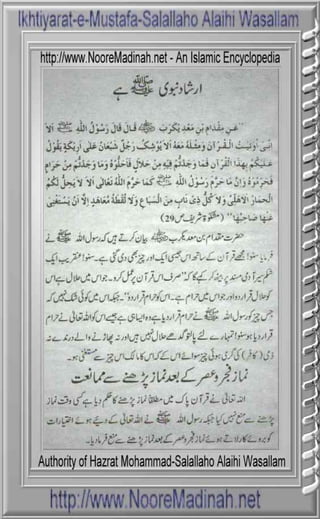 Ikhtiyarat-e-Mustafa-Salallaho Alaihi Wasallam
http://www.NooreMadinah.net - An Islamic Encyclopedia
ارشاد نبوی ﷺ ہے
"عَنْ مِقْدَامِ بْنِ مَعْدِ یْکَرِبَ ؓ قَالَ قَالَ رَسُوْلُ اللّٰہِ ﷺ اَلَا
اِنِّی اُوْتِیْتُ الْقُرْاٰنَ وَمِثْلَہٗ مَعَہٗ اَلَا یُوْشِکُ رَجُلٌ شَبْعَانُ عَلٰی اَرِیْکَتِہٖ یَقُوْلُ
عَلَیْکُمْ بِھٰذَا الْقُرْاٰنِ فَمَا وَجَدْتُّمْ فِیْہِ مِنْ حَلَالٍ فَاَحِلُّوْہُ وَمَا وَجَدْتُّمْ مِنْ حَرَامٍ
فَحَرِّمُوْہُ وَاِنَّ مَا حَرَّمَ رَسُوْلُ اللّٰہِ ﷺ کَمَا حَرَّمَ اللّٰہُ تَعَالٰی اَلَا لَا یَحِلُّ لَکُمْ
الْحِمَارُ الْاَھْلِیُّ وَلَا کُلُّ ذِیْ نَابٍ مِنَ السِّبَاعِ وَلَا لُقْطَۃُ مُعَاھِدٍ اِلَّا اَنْ یَسْتَغْنِیَ
عَنْھَا صَاحِبُھَا" (مشکوٰۃ شریف ص 29)
حضرت مقدام بن معدیکرب ؓ بیان کرتے ہیں کہ رسول اللہ ﷺ نے
فرمایا سنو! مجھے قرآن کے ساتھ اس جیسی ایک اور چیز بھی دی گئی ہے۔ سنو! عنقریب ایک
شکم سیر آدمی مسند پر بیٹھ کر کہے گا کہ "صرف اس قرآن پر عمل کرو۔ جو اس میں حلال ہے اس
کو حلال قرار دو اور جو اس میں حرام ہے۔ اس کو حرام قرار دو"۔ جبکہ اس میں کوئی شک نہیں کہ
جس چیز کو رسول اللہ ﷺ نے حرام قرار دیا ہے وہ ایسا ہی ہے جیسے اس کو اللہ تعالیٰ نے حرام
قرار دیا ہو سنو! تمہارے لئے پالتو گدھے حلال نہیں ہیں اور نہ پھاڑنے والے درندے نہ
ذمی (کافر) کی گری ہوئی چیز سوائے اس کے کہ اس کا مالک اس چیز سے مستغنی ہو۔
نماز فجر و عصر کے بعد نماز پڑھنے سے ممانعت
اللہ تعالیٰ نے قرآن پاک میں مطلقاً نماز پڑھنے کا حکم دیا ہے کسی وقت نماز
پڑھنے سے منع نہیں کیا جبکہ رسول اللہ ﷺ نے اللہ تعالیٰ کے دیئے ہوئے اختیارات
کو بروئے کار لاتے ہوئے نماز فجر و عصر کے بعد نماز پڑھنے سے منع فرما دیا۔
Authority of Hazrat Mohammad-Salallaho Alaihi Wasallam
http://www.NooreMadinah.net